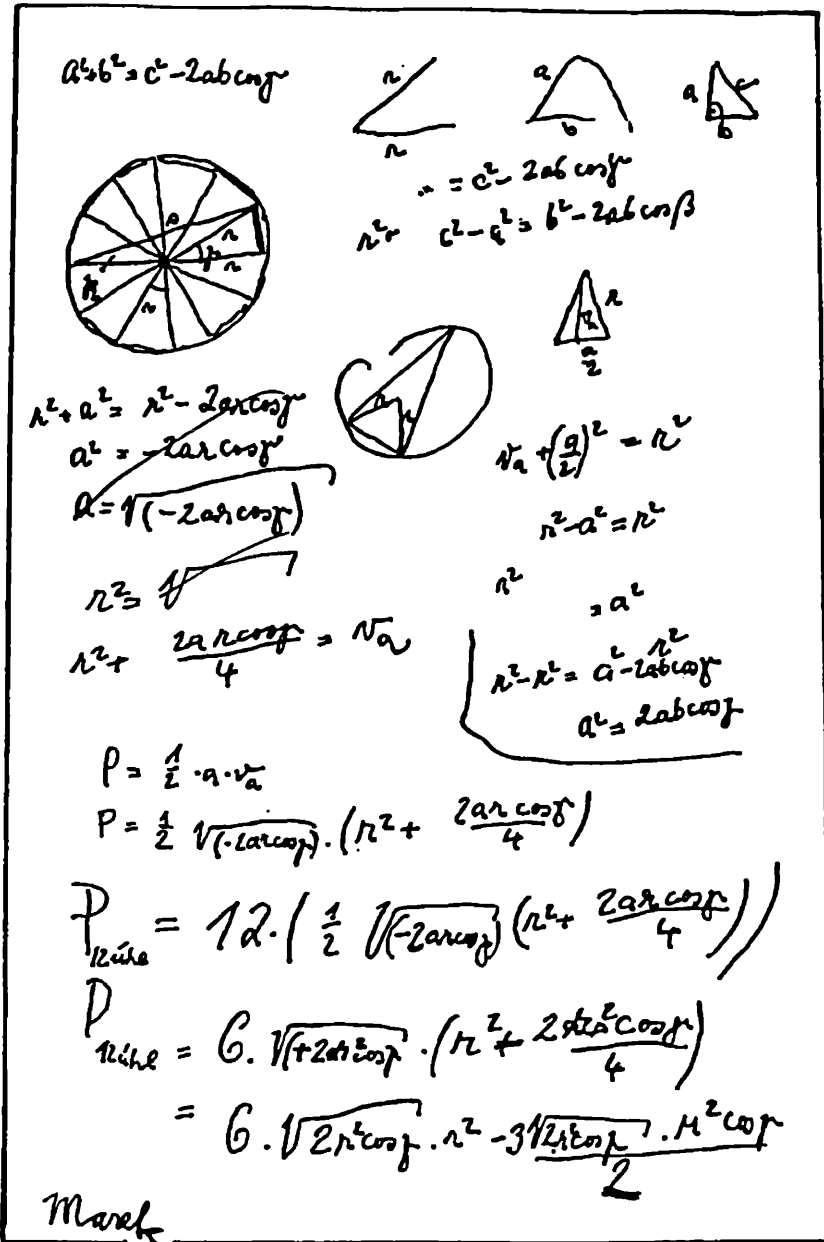 a²+b² = c² - 2ab cosγ
r
r
a
b
a
c
b
= c² - 2ab cosγ
r² c² - a² = b² - 2ab cosβ
r
r
r
r
a/2
r² + a² = r² - 2ar cosγ
a² = -2ar cosγ
a = √(-2ar cosγ)
r² = √
r² + 2ar cosγ/4 = va
va + (a/2)² = r²
r² - a² = r²
r²
= a²
r² - r² = a² - 2ab cosγ
r²
a² = 2ab cosγ
P = 1/2 · a · va
P = 1/2 √(-2ar cosγ) · (r² + 2ar cosγ/4)
P12úhe = 12 · (1/2 √(-2ar cosγ) (r² + 2ar cosγ/4))
P12úhe = 6 · √(+2ar² cosγ) · (r² + 2r² cosγ/4)
= 6 · √2r² cosγ · r² - 3√2r² cosγ · r² cosγ/2
Marek